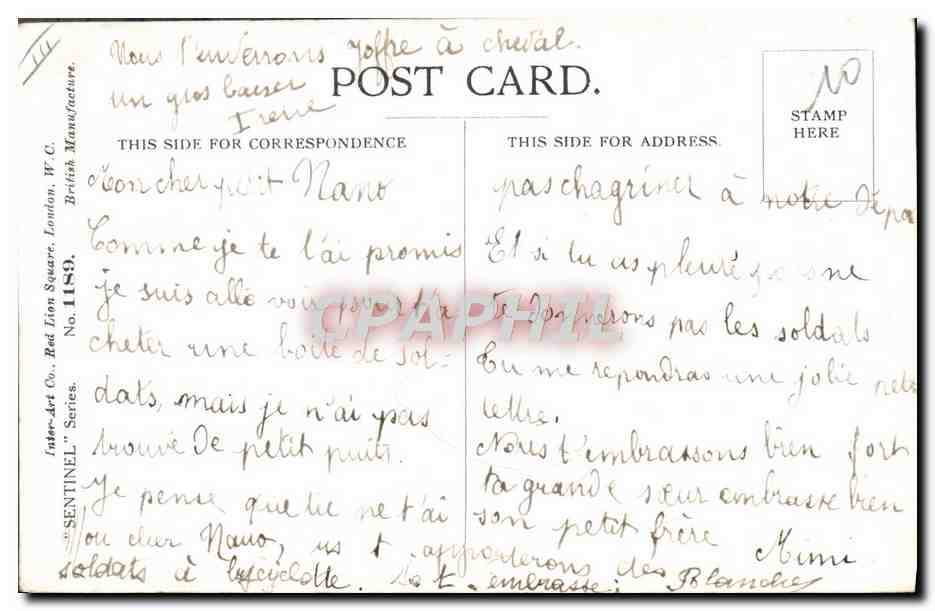 Nous t'enverrons Joffre à cheval.
un gros baiser
Irene
POST CARD.
STAMP
HERE
THIS SIDE FOR CORRESPONDENCE
THIS SIDE FOR ADDRESS.
Mon cher petit Nano
Comme je te l'ai promis
je suis allé voir pour t'a
cheter une boite de sol-
dats, mais je n'ai pas
trouvé de petit
Je pense que tu ne t'ai
pas chagriner à notre dépa
Et si tu as pleuré ne
te donnerons pas les soldats
Tu me repondras une jolie petite
lettre.
Nous t'embrassons bien fort
ta grande sœur embrasse bien
son petit frère
Mimi
mon cher Nano, ns t apporterons des
soldats à bycyclette. t embrasse: Blanche
Inter-Art Co., Red Lion Square, London, W.C.
British Manufacture.
"SENTINEL" Series. No. 1189.
CPAPHIL